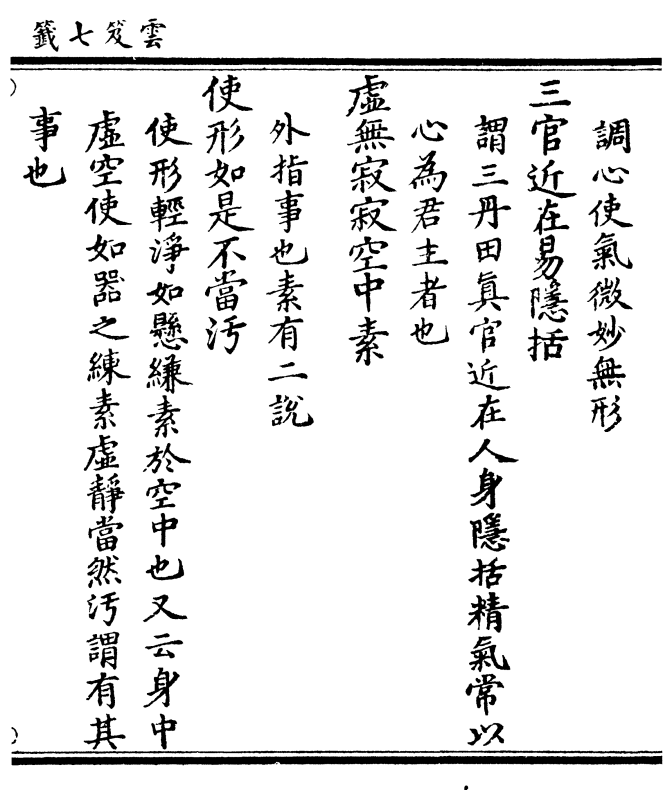 雲笈七籤
調心使氣微妙無形
三官近在易隱括
謂三丹田真官近在人身隱括精氣常以
心為君主者也
虛無寂寂空中素
外指事也素有二說
使形如是不當汚
使形輕淨如懸縑素於空中也又云身中
虛空使如器之練素虛靜當然汚謂有其
事也